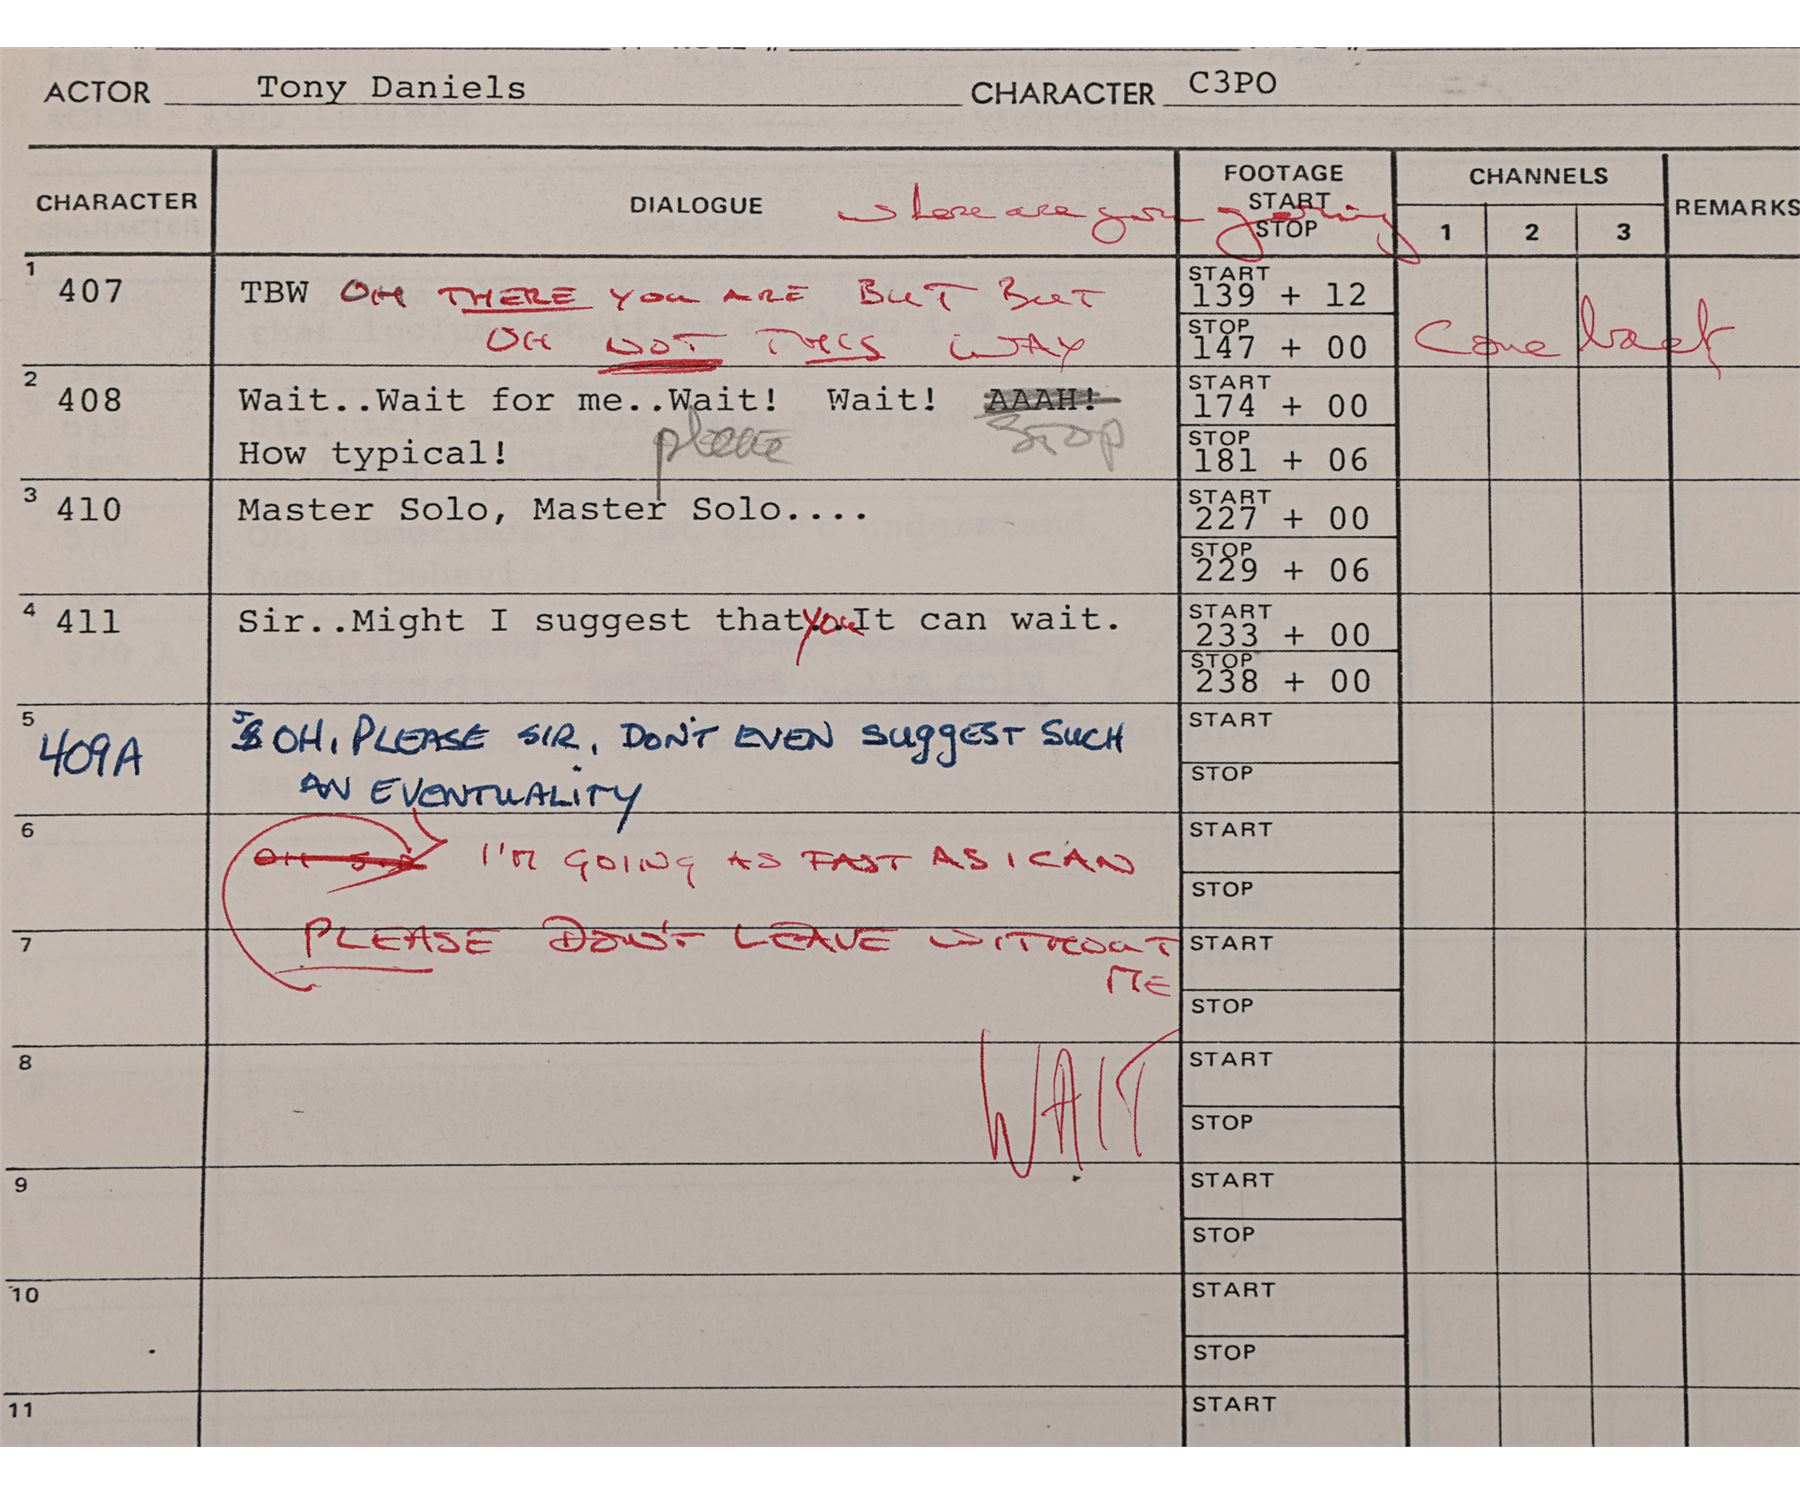 ACTOR Tony Daniels CHARACTER C3PO
CHARACTER DIALOGUE where are you going FOOTAGE START STOP CHANNELS 1 2 3 REMARKS
1 407 TBW OH THERE YOU ARE BUT BUT START 139 + 12
OH NOT THIS WAY STOP 147 + 00 Come back
2 408 Wait..Wait for me..Wait! Wait! AAAH! START 174 + 00
please STOP
How typical! STOP 181 + 06
3 410 Master Solo, Master Solo.... START 227 + 00
STOP 229 + 06
4 411 Sir..Might I suggest that you It can wait. START 233 + 00
STOP 238 + 00
5 409A OH, PLEASE SIR, DON'T EVEN SUGGEST SUCH START
AN EVENTUALITY STOP
6 OH SIR I'M GOING AS FAST AS I CAN START
STOP
7 PLEASE DON'T LEAVE WITHOUT START
ME
STOP
8 START
WAIT
STOP
9 START
STOP
10 START
STOP
11 START